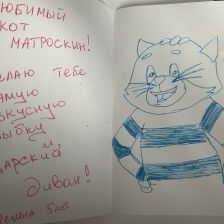 ЛЮБИМЫЙ
КОТ
МАТРОСКИН!
ЖЕЛАЮ ТЕБЕ
САМУЮ
ВКУСНУЮ
РЫБКУ
ЦАРСКИЙ
диван!
5 лет